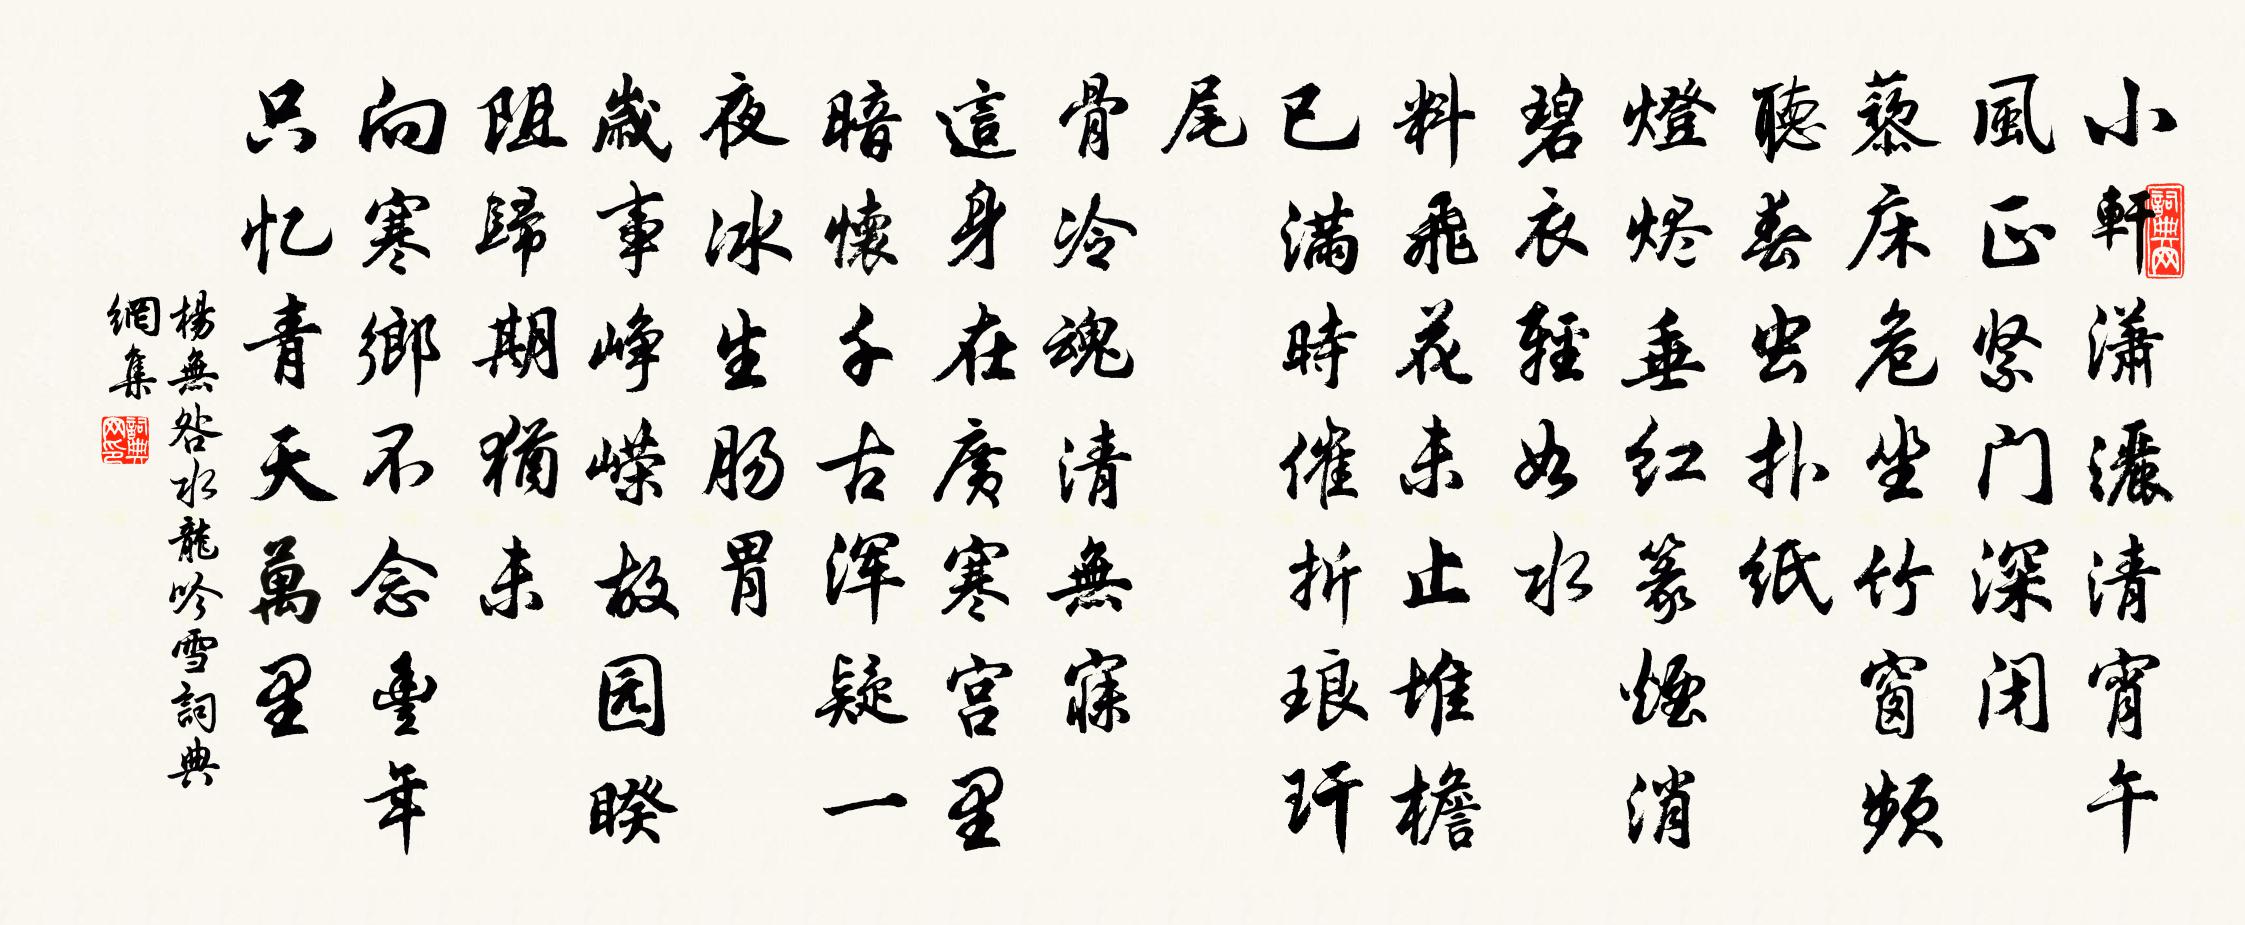 小軒潇灑清宵午
風正紧门深闭
藜床危坐竹窗频
聽春虫扑纸
燈烬垂红篆煙消
碧衣輕如水
料飛花未止堆檐
已满時催折琅玕
尾
骨冷魂清無寐
這身在廣寒宫里
暗懷千古浑疑一
夜冰生肠胃
歲事峥嵘故园睽
阻歸期猶未
向寒鄉不念豊年
只忆青天萬里
楊無咎水龍吟雪詞典
網集
詞典网
詞典网印